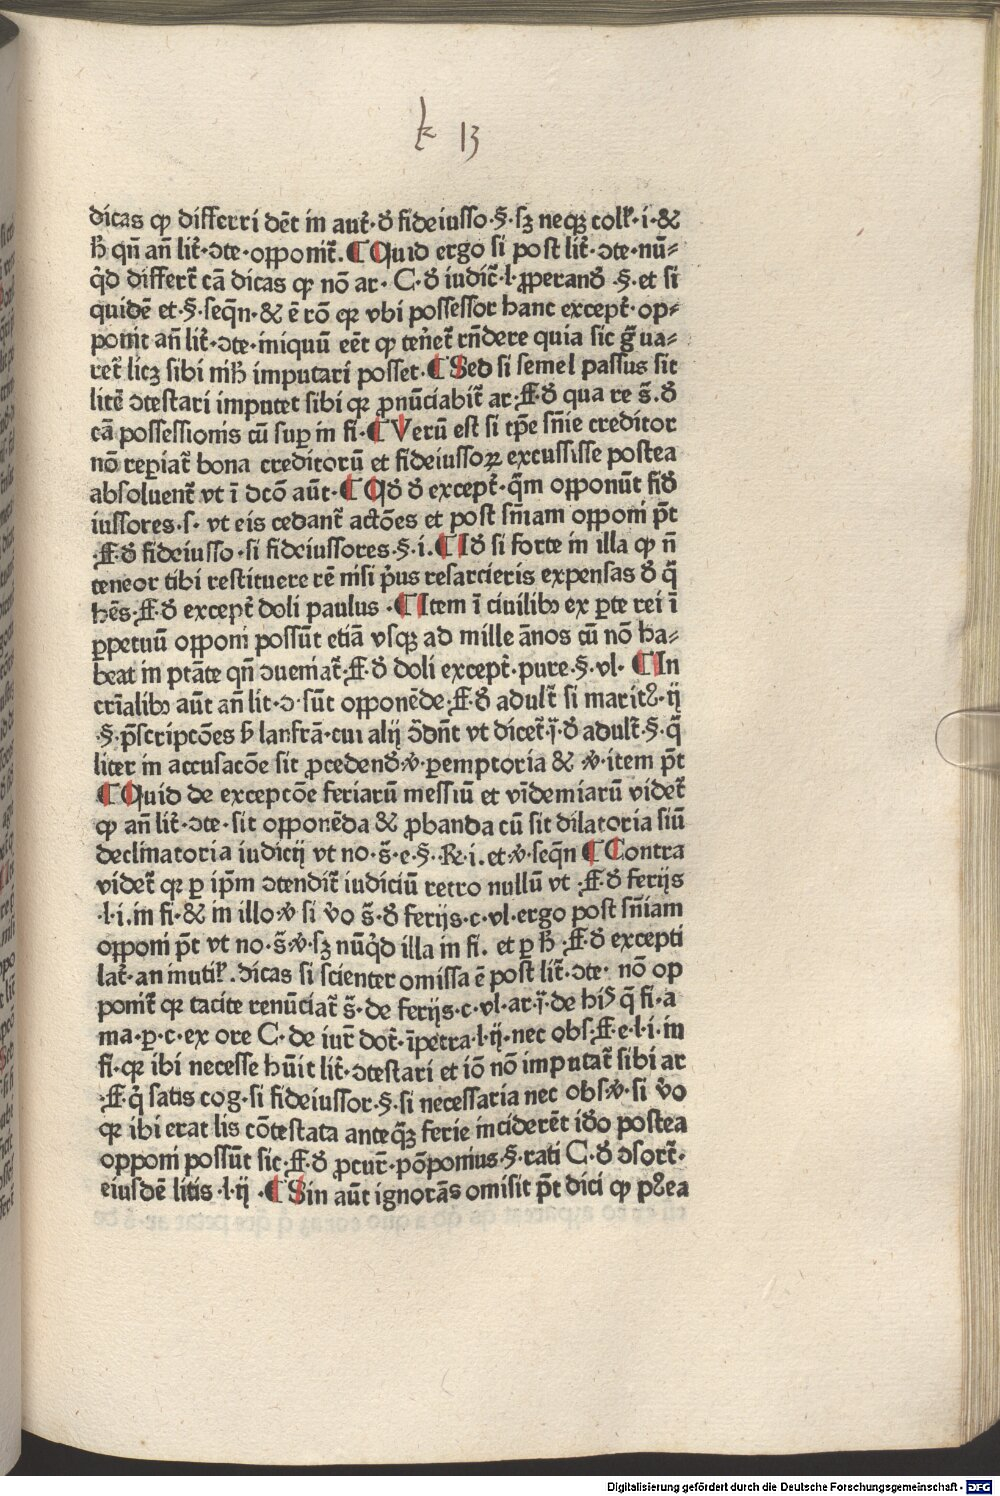 k 13
dicas ꝙ differri dēt in aut̄· đ fideiusso·§·sꝫ neqꝫ coll̄·i·&
ꝟ qn̄ an̄ lit̄·ↄte·opponit̄.¶ Quid ergo si post lit̄·ↄte·nū⸗
q̇d differt̄ cā dicas ꝙ nō ar· C·đ iudic̄·l·ꝓperanđ §·et si
quidē et·§·seqn̄·& ē rō qꝛ vbi possessor hanc except̄·op⸗
ponit an̄ lit̄·ↄte·iniquū eēt ꝙ tēnet̄ rn̄dere quia sic g̊ua⸗
ret̄ licꝫ sibi nih̄ imputari posset·¶ Sed si semel passus sit
litē ↄtestari imputet sibi qꝛ ꝓnūciabit̄ ar·ff·đ qua re s̄.đ
tā possessionis cū suꝑ in fi·¶ Verū est si tp̄e sn̄ie creditor
nō reꝑiat̄ bona creditorū et fideiussoꝝ excussisse postea
absoluent̄ vt ī dcō aūt·¶ Qđ đ except̄·q̄m opponūt fiđ
iussores·s· vt eis cedant̄ actōes et post sn̄iam opponi p̄t
·ff·đ fideiusso·si fideiussores·§·i.¶ Iđ si forte in illa ꝙ n̄
teneor tibi restituere rē nisi p̄us resarcieris expensas đ q̄
hēs·ff·đ except̄ doli paulus ·¶ Item ī ciuilibꝫ ex ꝑte rei ī
ꝑpetuū opponi possūt etiā vsqꝫ ad mille ānos cū nō ha⸗
beat in ptāte qn̄ ↄueniat̄·ff·đ doli except̄·pure·§·vl· ¶ In
crīalibꝫ aūt an̄ lit·ↄ·sūt opponēde·ff·đ adult̄ si maritꝰ·ij
·§·p̄scripcōes ẜ lanfrā·cui alij ↄ̄dn̄t vt dicet̄·j̄·đ adult̄·§·q̄
liter in accusacōe sit ꝓcedenđ·ꝟ·ꝑemptoria & ·ꝟ·item p̄t
¶ Quid de excepcōe feriarū messiū et vīdemiarū videt̄
ꝙ an̄ lit̄·ↄte·sit opponēda & ꝓbanda cū sit dilatoria siū
declinatoria iudicij vt no·s̄·e·§·R·i.et·ꝟ·seqn̄ ¶ Contra
videt̄ qꝛ ꝑ ip̄m ↄtendit̄ iudiciū retro nullū vt ·ff·đ ferijs
·l·i.in fi·& in illo·ꝟ si v̊o s̄·đ ferijs·c·vl·ergo post sn̄iam
opponi p̄t vt no·s̄·ꝟ·sꝫ nūq̇d illa in fi. et ꝑ ħ ·ff·đ excepti
lat̄·an inutil̄.dicas si scienter omissa ē post lit̄·ↄte· nō op
ponit̄ qꝛ tacite renūciat̄ s̄·de ferijs·c·vl·ar·j̄·de hijs q̄ fi·a
ma·ꝑ·c·ex ore C·de iur̄ dot̄·īpetra·l·ij·nec obs·ff·e·l·i·in
fi·qꝛ ibi necesse hūit lit̄·ↄtestari et iō nō imputat̄ sibi ar
·ff·q̇ satis cog·si fideiussor·§·si necessaria nec obs·ꝟ·si v̊o
qꝛ ibi erat lis cōtestata anteq̄ꝫ ferie inciderēt iđo postea
opponi possūt sic·ff·đ ꝓcur̄·pōponius·§·rati C·đ ↄsort̄·
eiusdē litis·l·ij ·¶ Sin aūt ignorās omisit p̄t dici ꝙ pꝰea
Digitalisierung gefördert durch die Deutsche Forschungsgemeinschaft - DFG